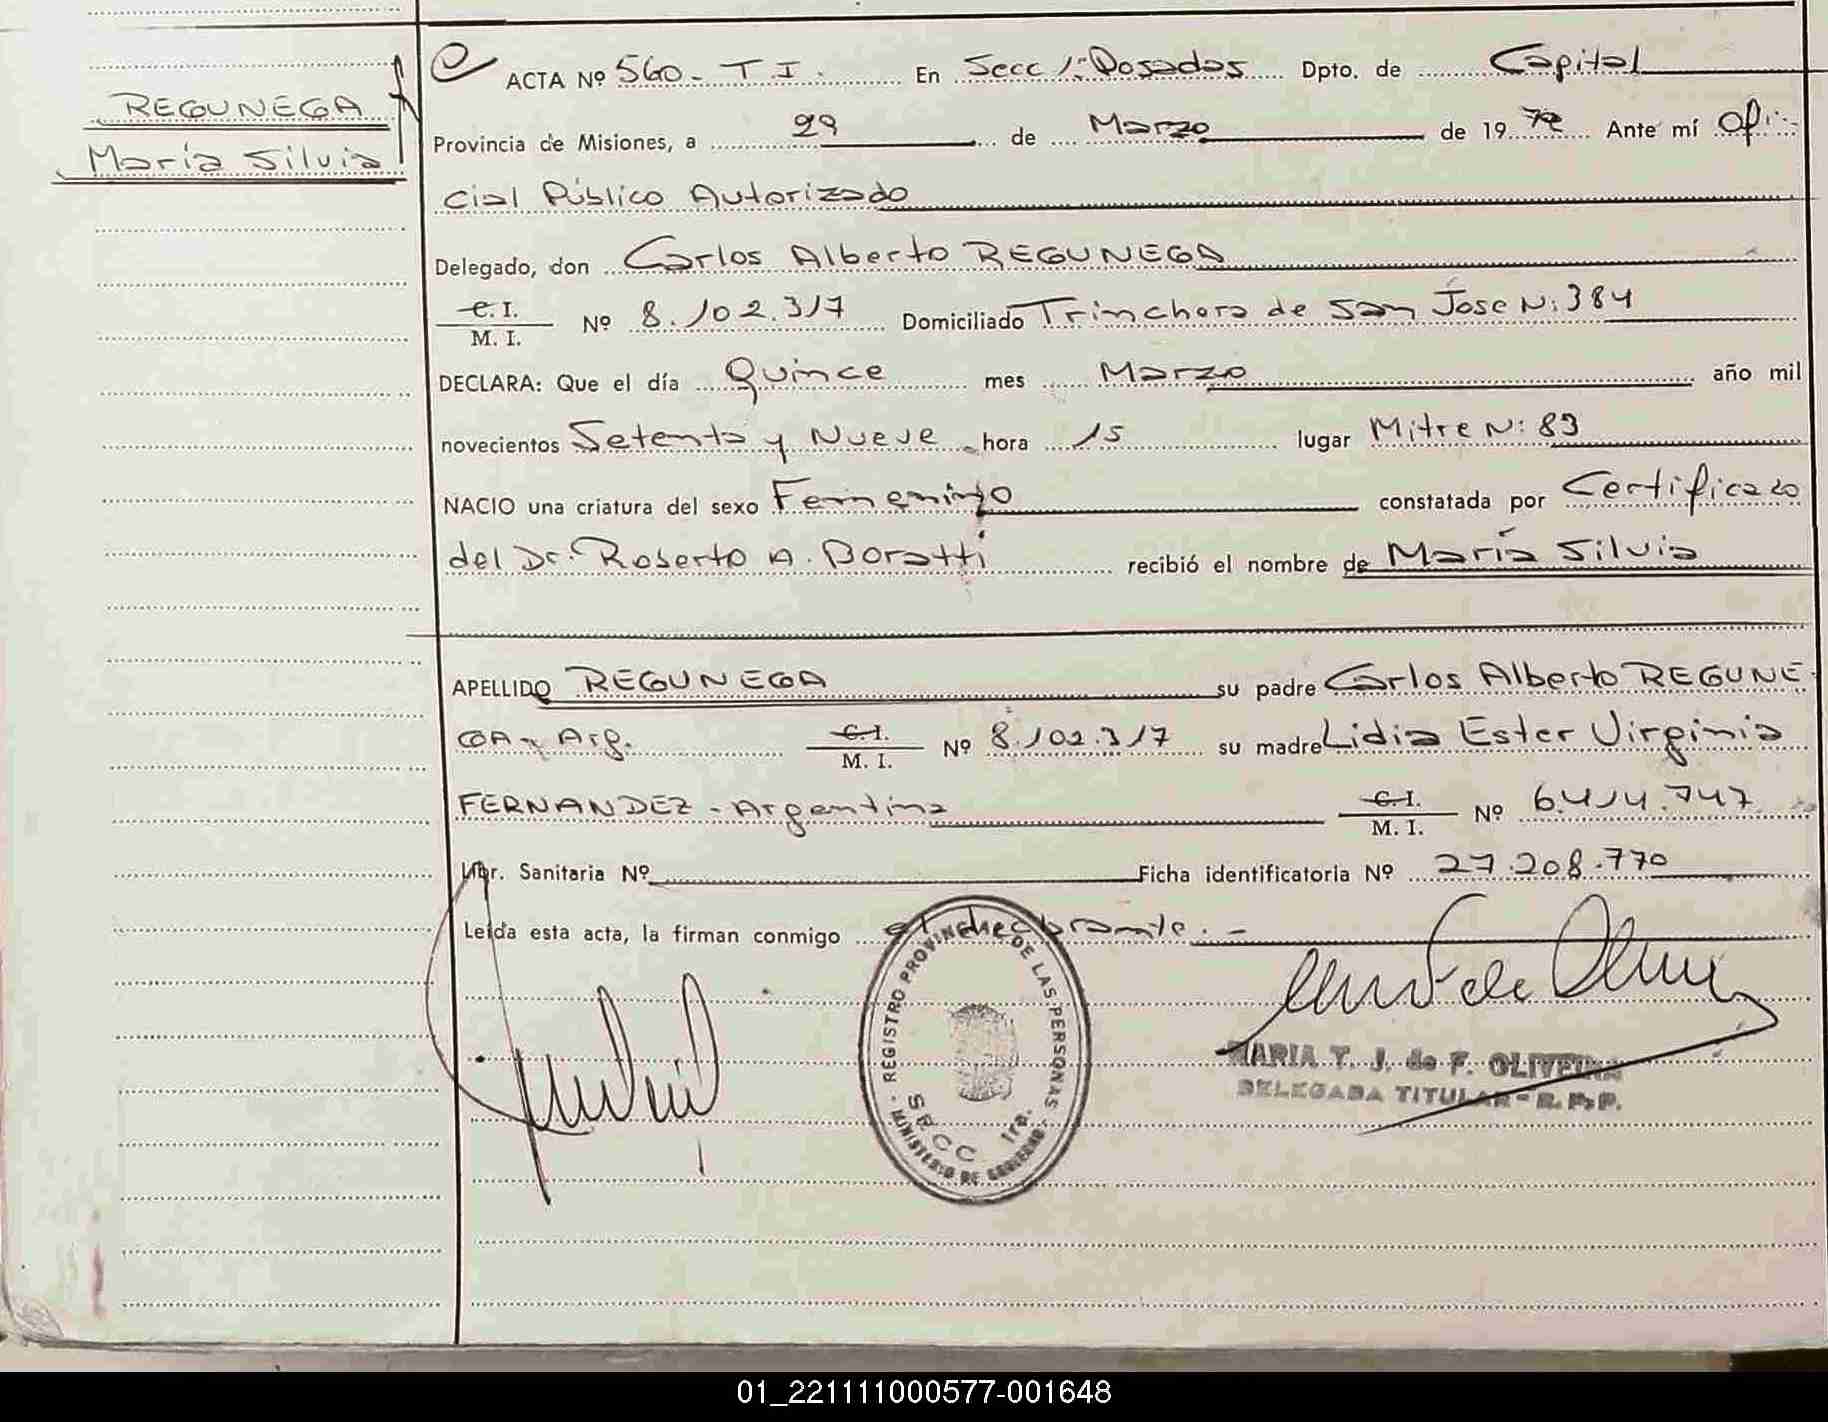 REGUNEGA
María Silvia
ACTA Nº 560 - T I. En Secc 1ª Posadas Dpto. de Capital
Provincia de Misiones, a 29 de Marzo de 19 79 Ante mí Ofi-
cial Público Autorizado
Delegado, don Carlos Alberto REGUNEGA
C. I.
M. I. Nº 8.102.317 Domiciliado Trinchera de San José N: 384
DECLARA: Que el día Quince mes Marzo año mil
novecientos Setenta y Nueve hora 15 lugar Mitre N: 83
NACIO una criatura del sexo Femenino constatada por Certificado
del Dr. Roberto A. Boratti recibió el nombre de María Silvia
APELLIDO REGUNEGA su padre Carlos Alberto REGUNE-
GA - Arg. C. I.
M. I. Nº 8.102.317 su madre Lidia Ester Virginia
FERNANDEZ - Argentina C. I.
M. I. Nº 6.414.747
Libr. Sanitaria Nº Ficha identificatoria Nº 27.208.770
Leída esta acta, la firman conmigo el declarante. -
REGISTRO PROVINCIAL DE LAS PERSONAS
SECC. 1ra.
MINISTERIO DE GOBIERNO
MARIA T. J. de F. OLIVEIRA
DELEGADA TITULAR - R. P. P.
01_221111000577-001648